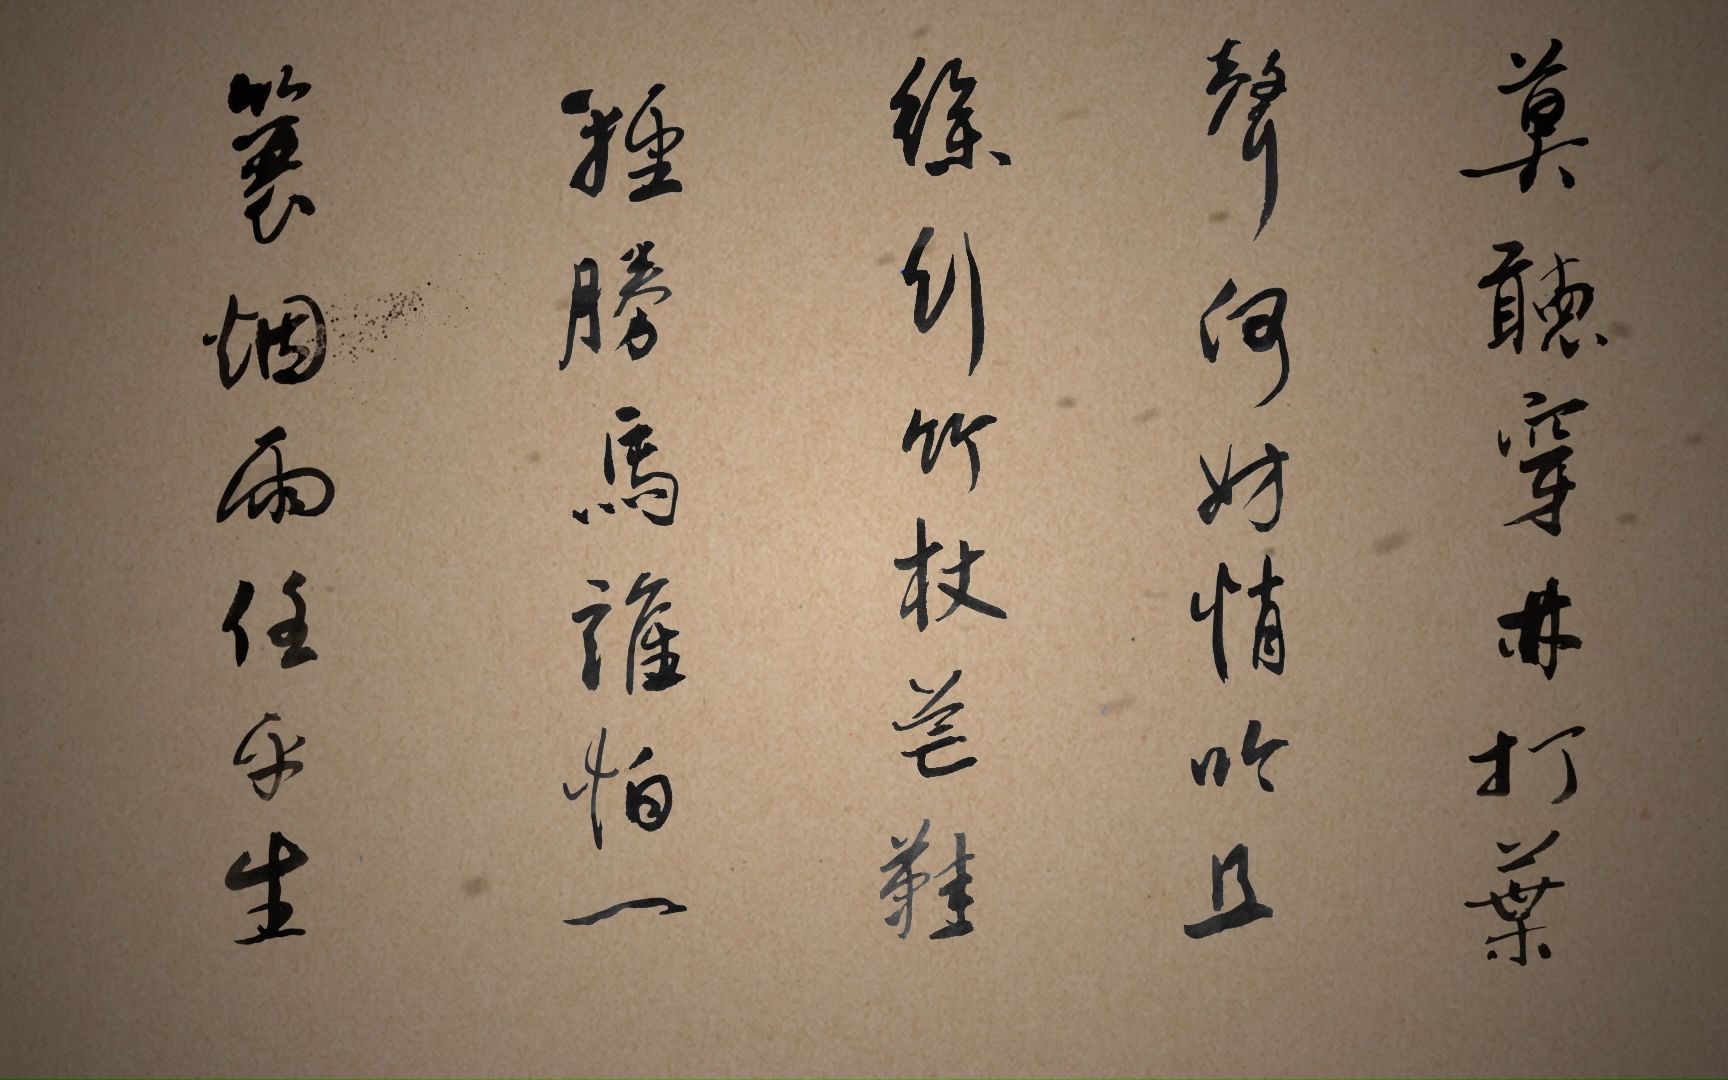 莫聽穿林打葉
聲何妨悄吟且
徐行竹杖芒鞋
輕勝馬誰怕一
蓑烟雨任平生